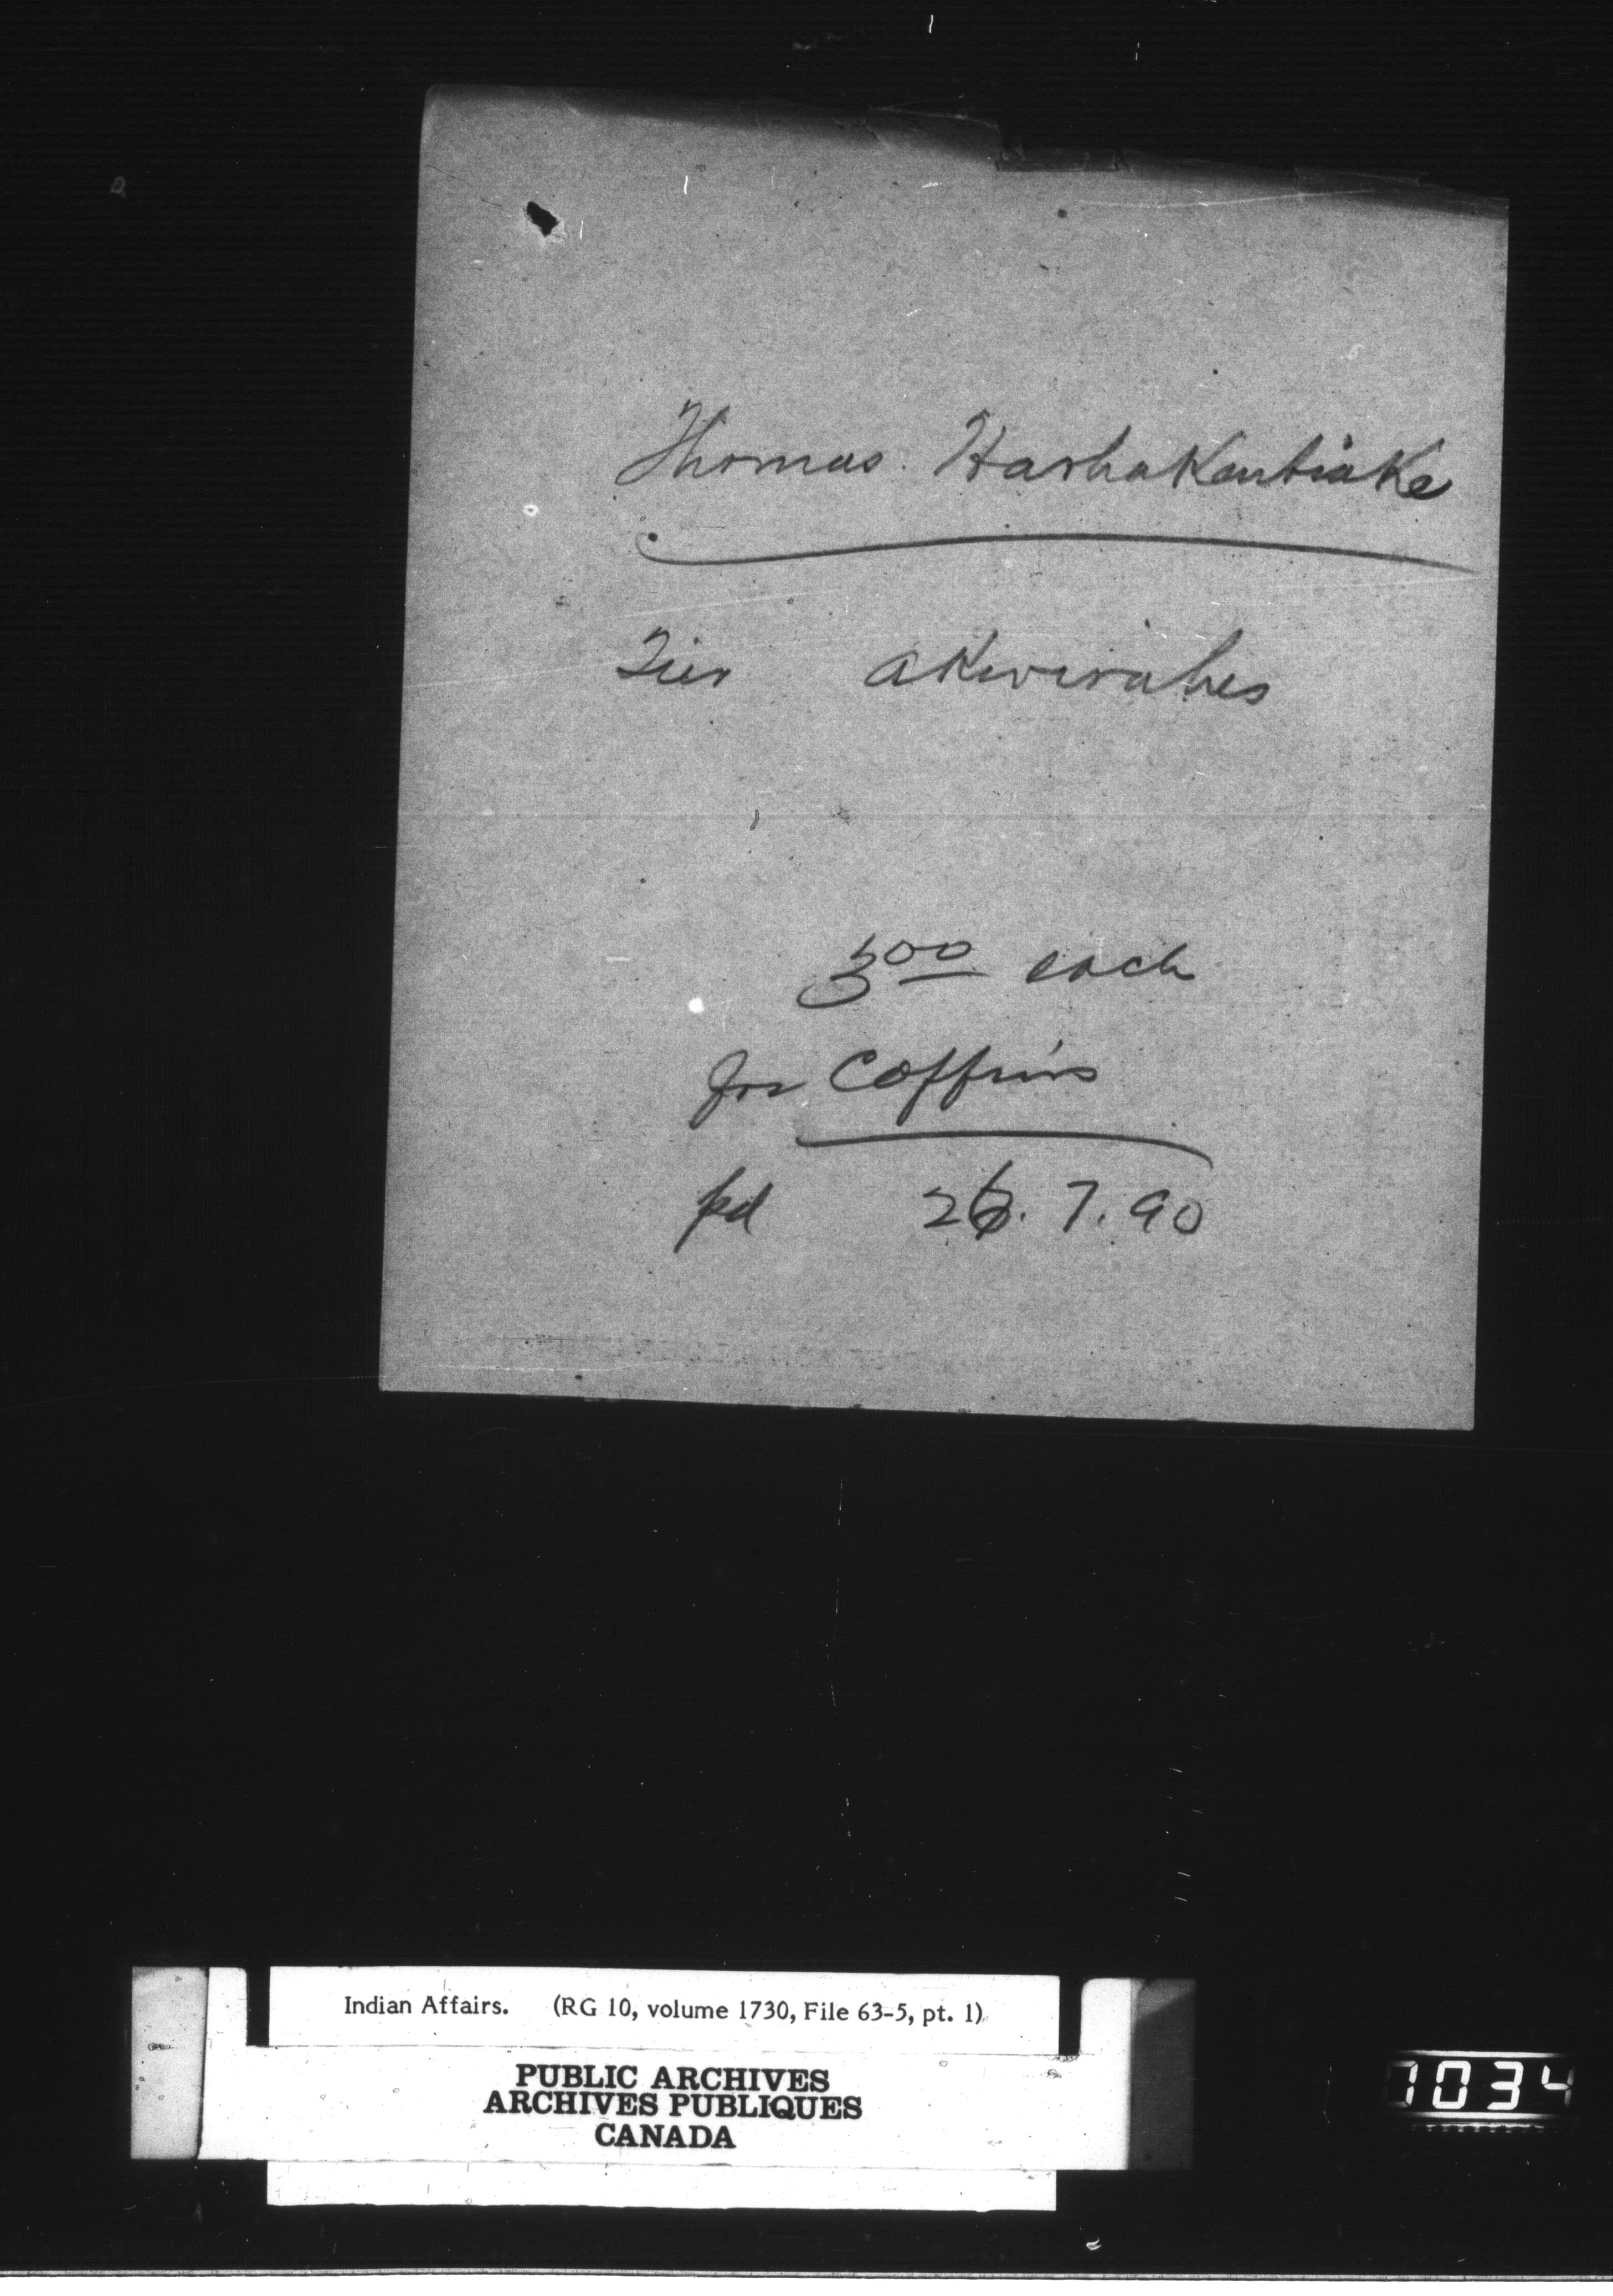 Thomas Harhakentiake
Tier akwirahes
3 00 each
for Coffins
pd 26. 7. 90
Indian Affairs. (RG 10, volume 1730, File 63-5, pt. 1)
PUBLIC ARCHIVES
ARCHIVES PUBLIQUES
CANADA
7034